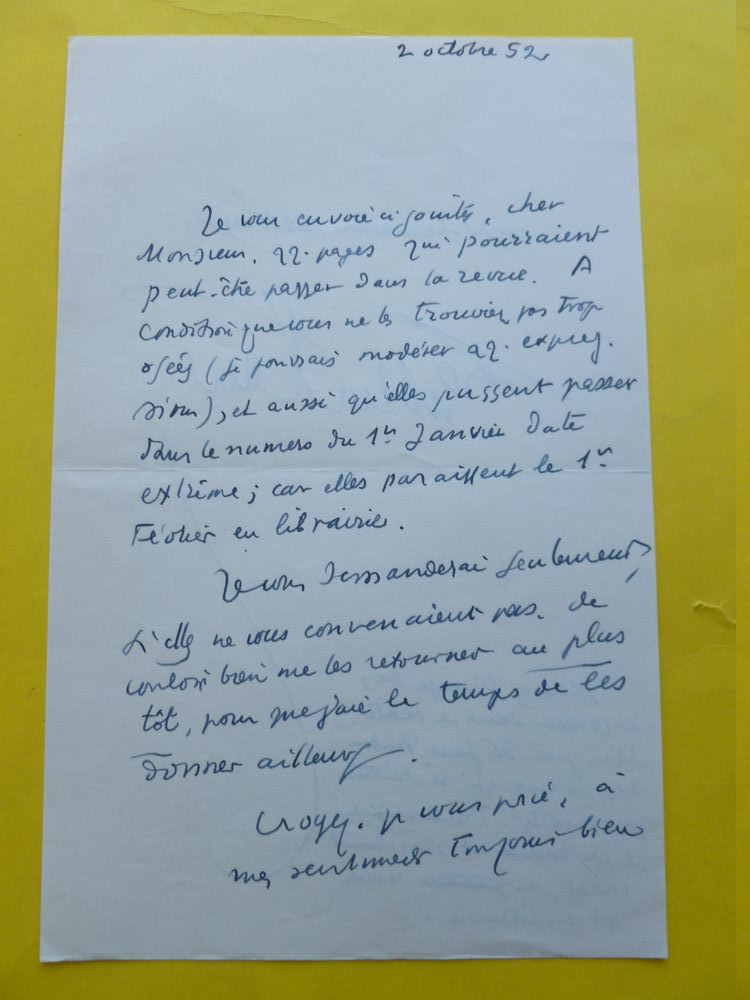 2 octobre 52
Je vous envoie ci-jointes, cher
Monsieur, qq. pages qui pourraient
peut-être passer dans la revue. A
condition que vous ne les trouviez pas trop
osées (je pourrais modérer qq. expres-
sions), et aussi qu'elles pussent passer
dans le numero du 1er Janvier date
extrême ; car elles paraissent le 1er
Février en librairie.
Je vous demanderai seulement,
si elles ne vous convenaient pas, de
vouloir bien me les retourner au plus
tôt, pour que j'aie le temps de les
donner ailleurs.
Croyez, je vous prie, à
mes sentiments toujours bien